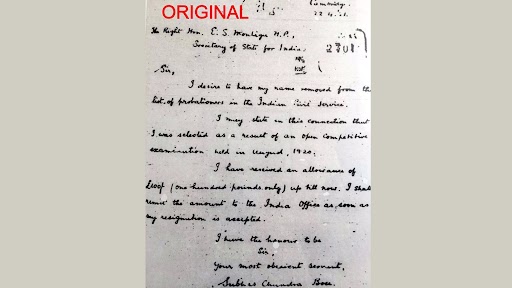 ORIGINAL
22.4.21
The Right Hon. E. S. Montagu M.P.,
Secretary of State for India
Sir,
I desire to have my name removed from the
list of probationers in the Indian Civil Service.
I may state in this connection that
I was selected as a result of an open competitive
examination held in August, 1920.
I have received an allowance of
£100/- (one hundred pounds only) up till now. I shall
remit the amount to the India Office as soon as
my resignation is accepted.
I have the honour to be
Sir,
Your most obedient servant,
Subhas Chandra Bose